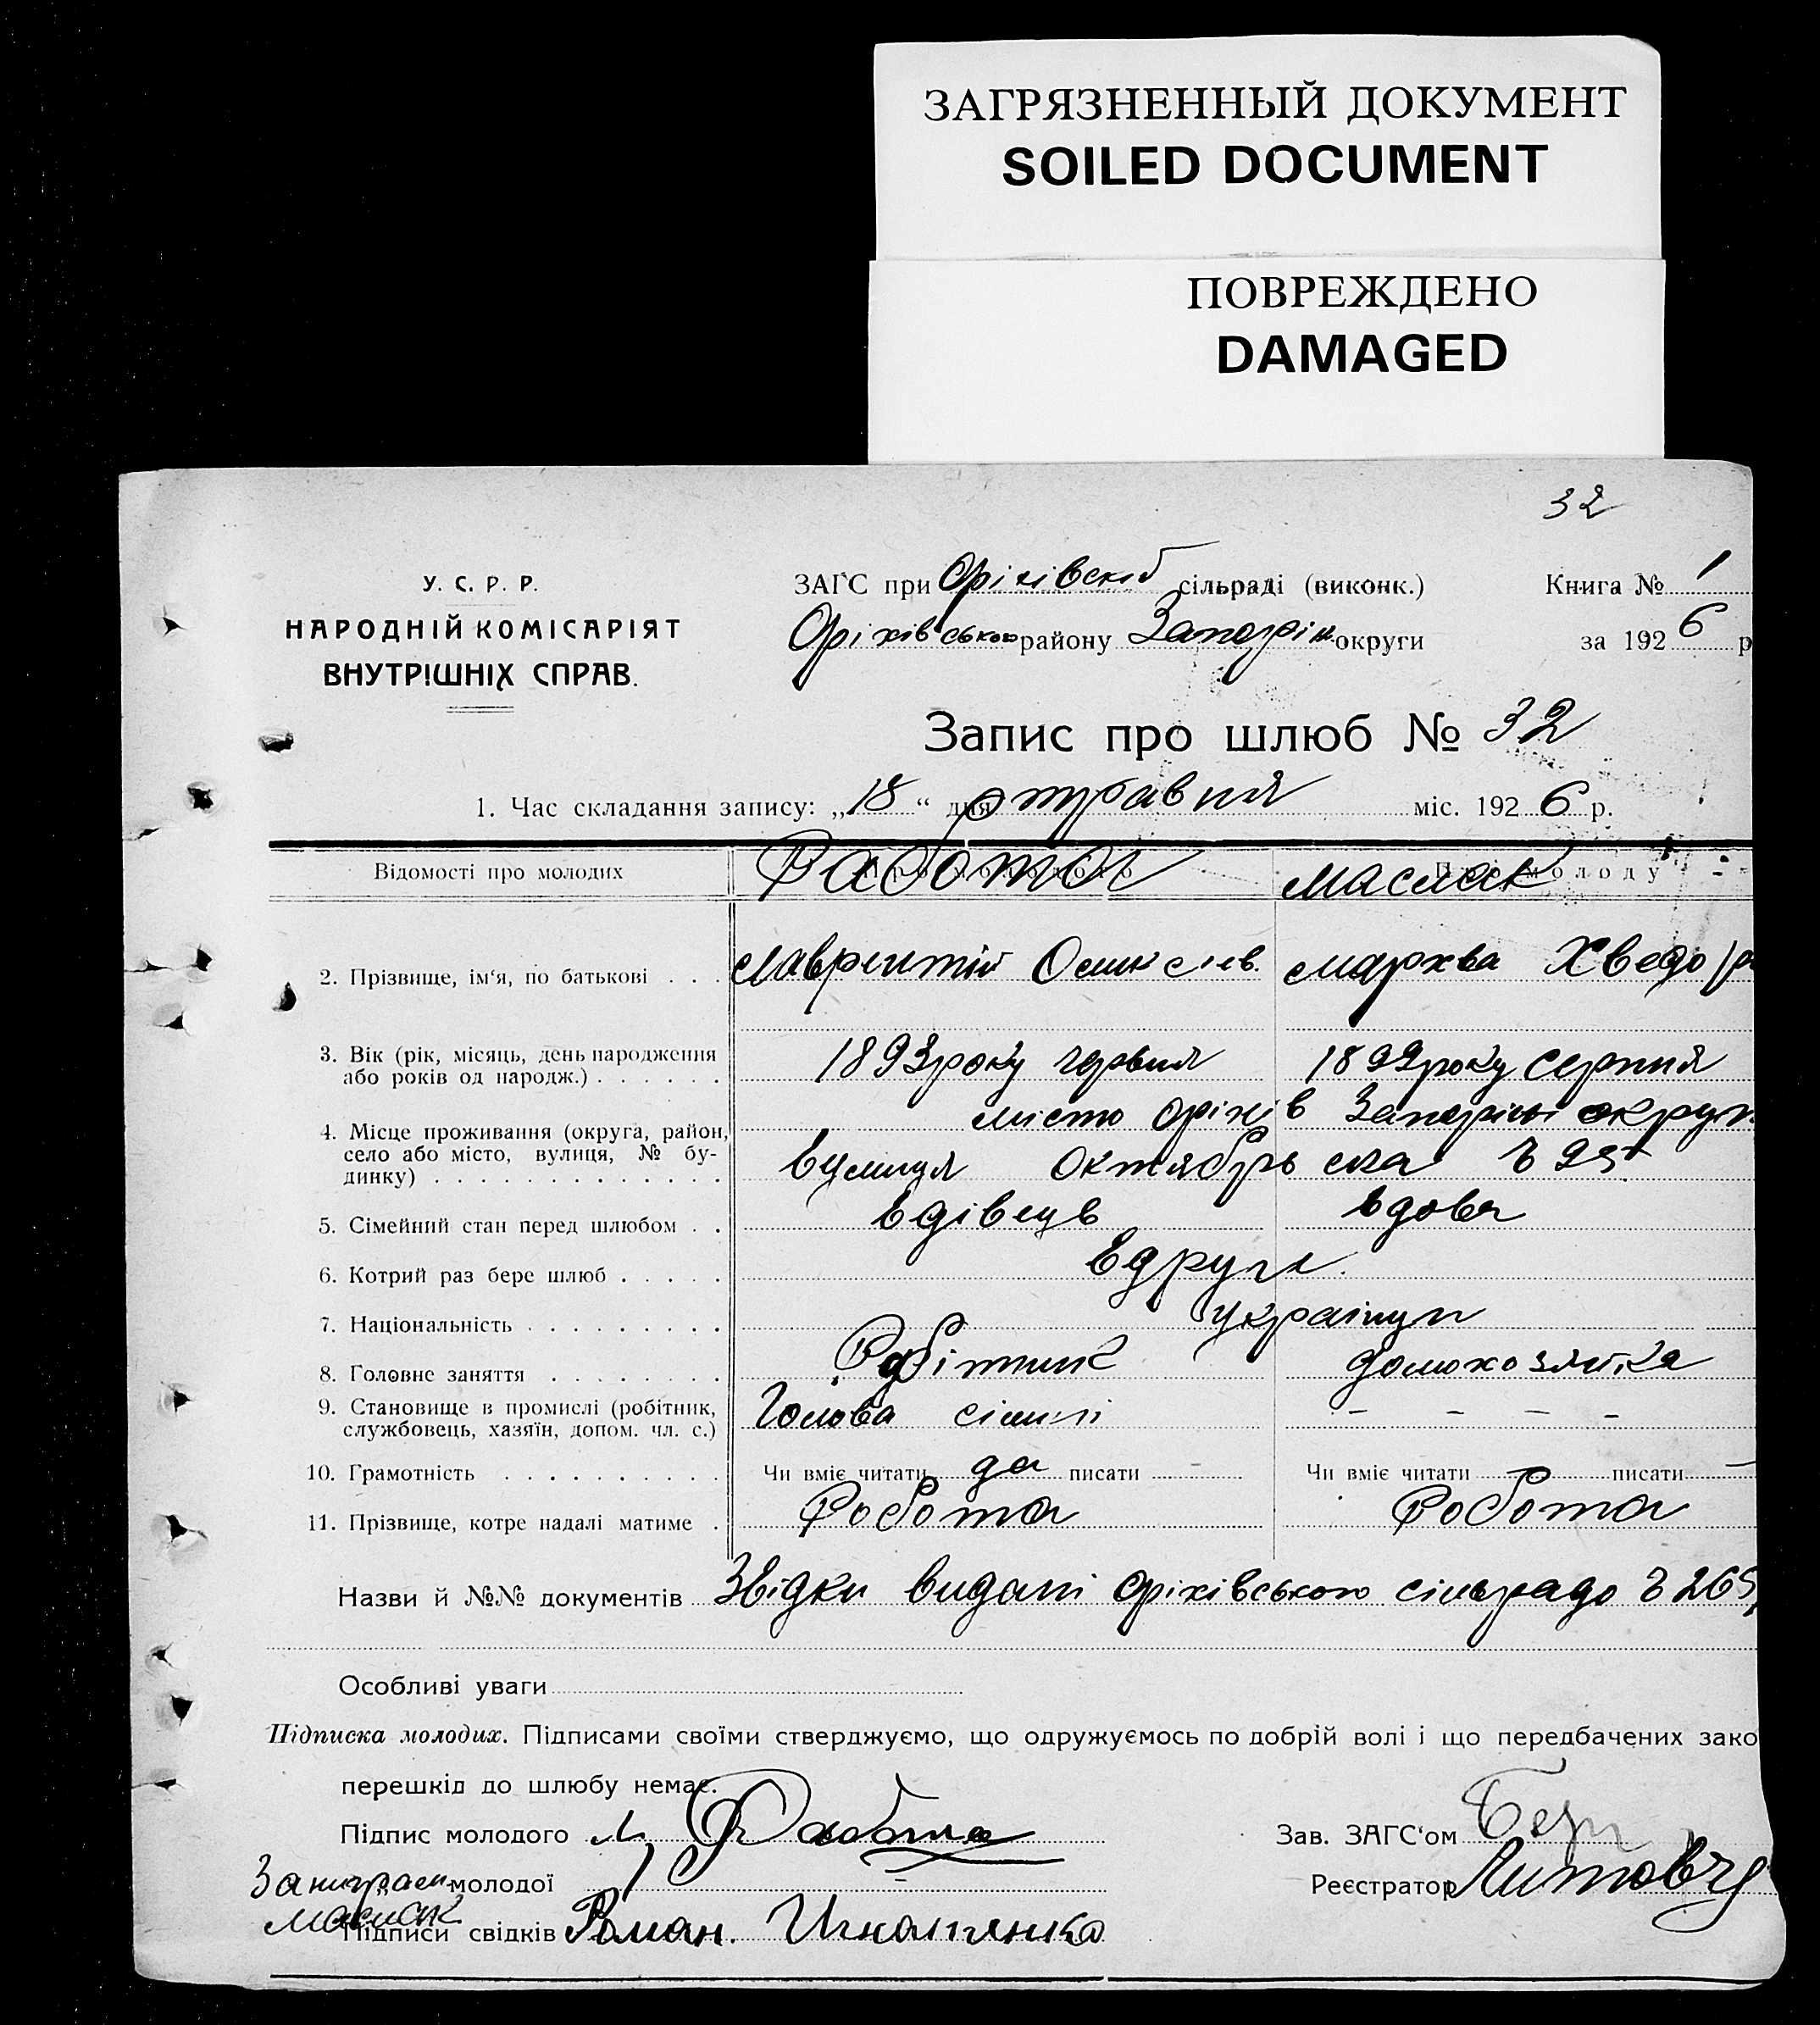 ЗАГРЯЗНЕННЫЙ ДОКУМЕНТ
SOILED DOCUMENT
ПОВРЕЖДЕНО
DAMAGED
32
У. С. Р. Р.
НАРОДНІЙ КОМІСАРІЯТ
ВНУТРІШНІХ СПРАВ.
ЗАГС при Оріхівській сільраді (виконк.) Книга № 1
Оріхівського району Запоріж округи за 1926 р
Запис про шлюб № 32
1. Час складання запису: „18“ дня травня міс. 1926 р.
Відомості про молодих Работа Маслак Про молоду
2. Прізвище, ім‘я, по батькові . . . Лаврентій Мархва Хведор
3. Вік (рік, місяць, день народження 1893 року червня 1899 року серпня
або років од народж.) . . . . . .
місто Оріхів Запоріш округи
4. Місце проживання (округа, район,
село або місто, вулиця, № бу- вулиця Октябрьська № 95
динку) . . . . . . . . . . . . .
5. Сімейний стан перед шлюбом . . вдівець вдова
6. Котрий раз бере шлюб . . . . . вдруге
7. Національність . . . . . . . . . українці
8. Головне заняття . . . . . . . . Робітник домохозяйка
9. Становище в промислі (робітник, Голова сімї - - - -
службовець, хазяїн, допом. чл. с.)
10. Грамотність . . . . . . . . . . Чи вміє читати да писати - Чи вміє читати - писати -
11. Прізвище, котре надалі матиме . Робота Робота
Назви й №№ документів Звідки видані Оріхівською сільрадо № 265
Особливі уваги
Підписка молодих. Підписами своїми стверджуємо, що одружуємось по добрій волі і що передбачених зако
перешкід до шлюбу немає.
Підпис молодого Л. Работа Зав. ЗАГС‘ом
За неграм. молодої - Реєстратор Литовч
Маслак
Підписи свідків Роман.